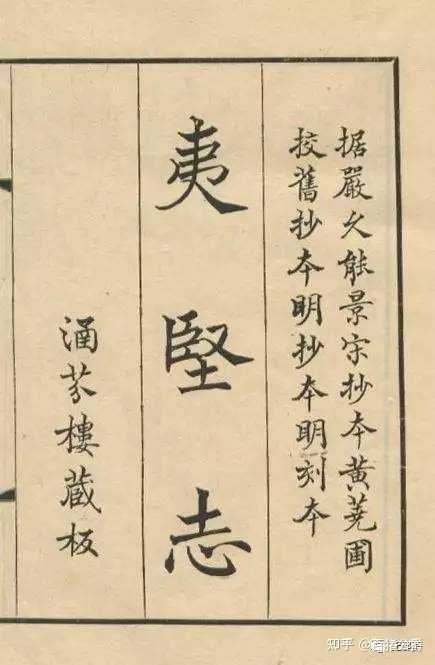 据嚴久能景宋抄本黃蕘圃
挍舊抄本明抄本明刻本
夷堅志
涵芬樓蔵板
知乎